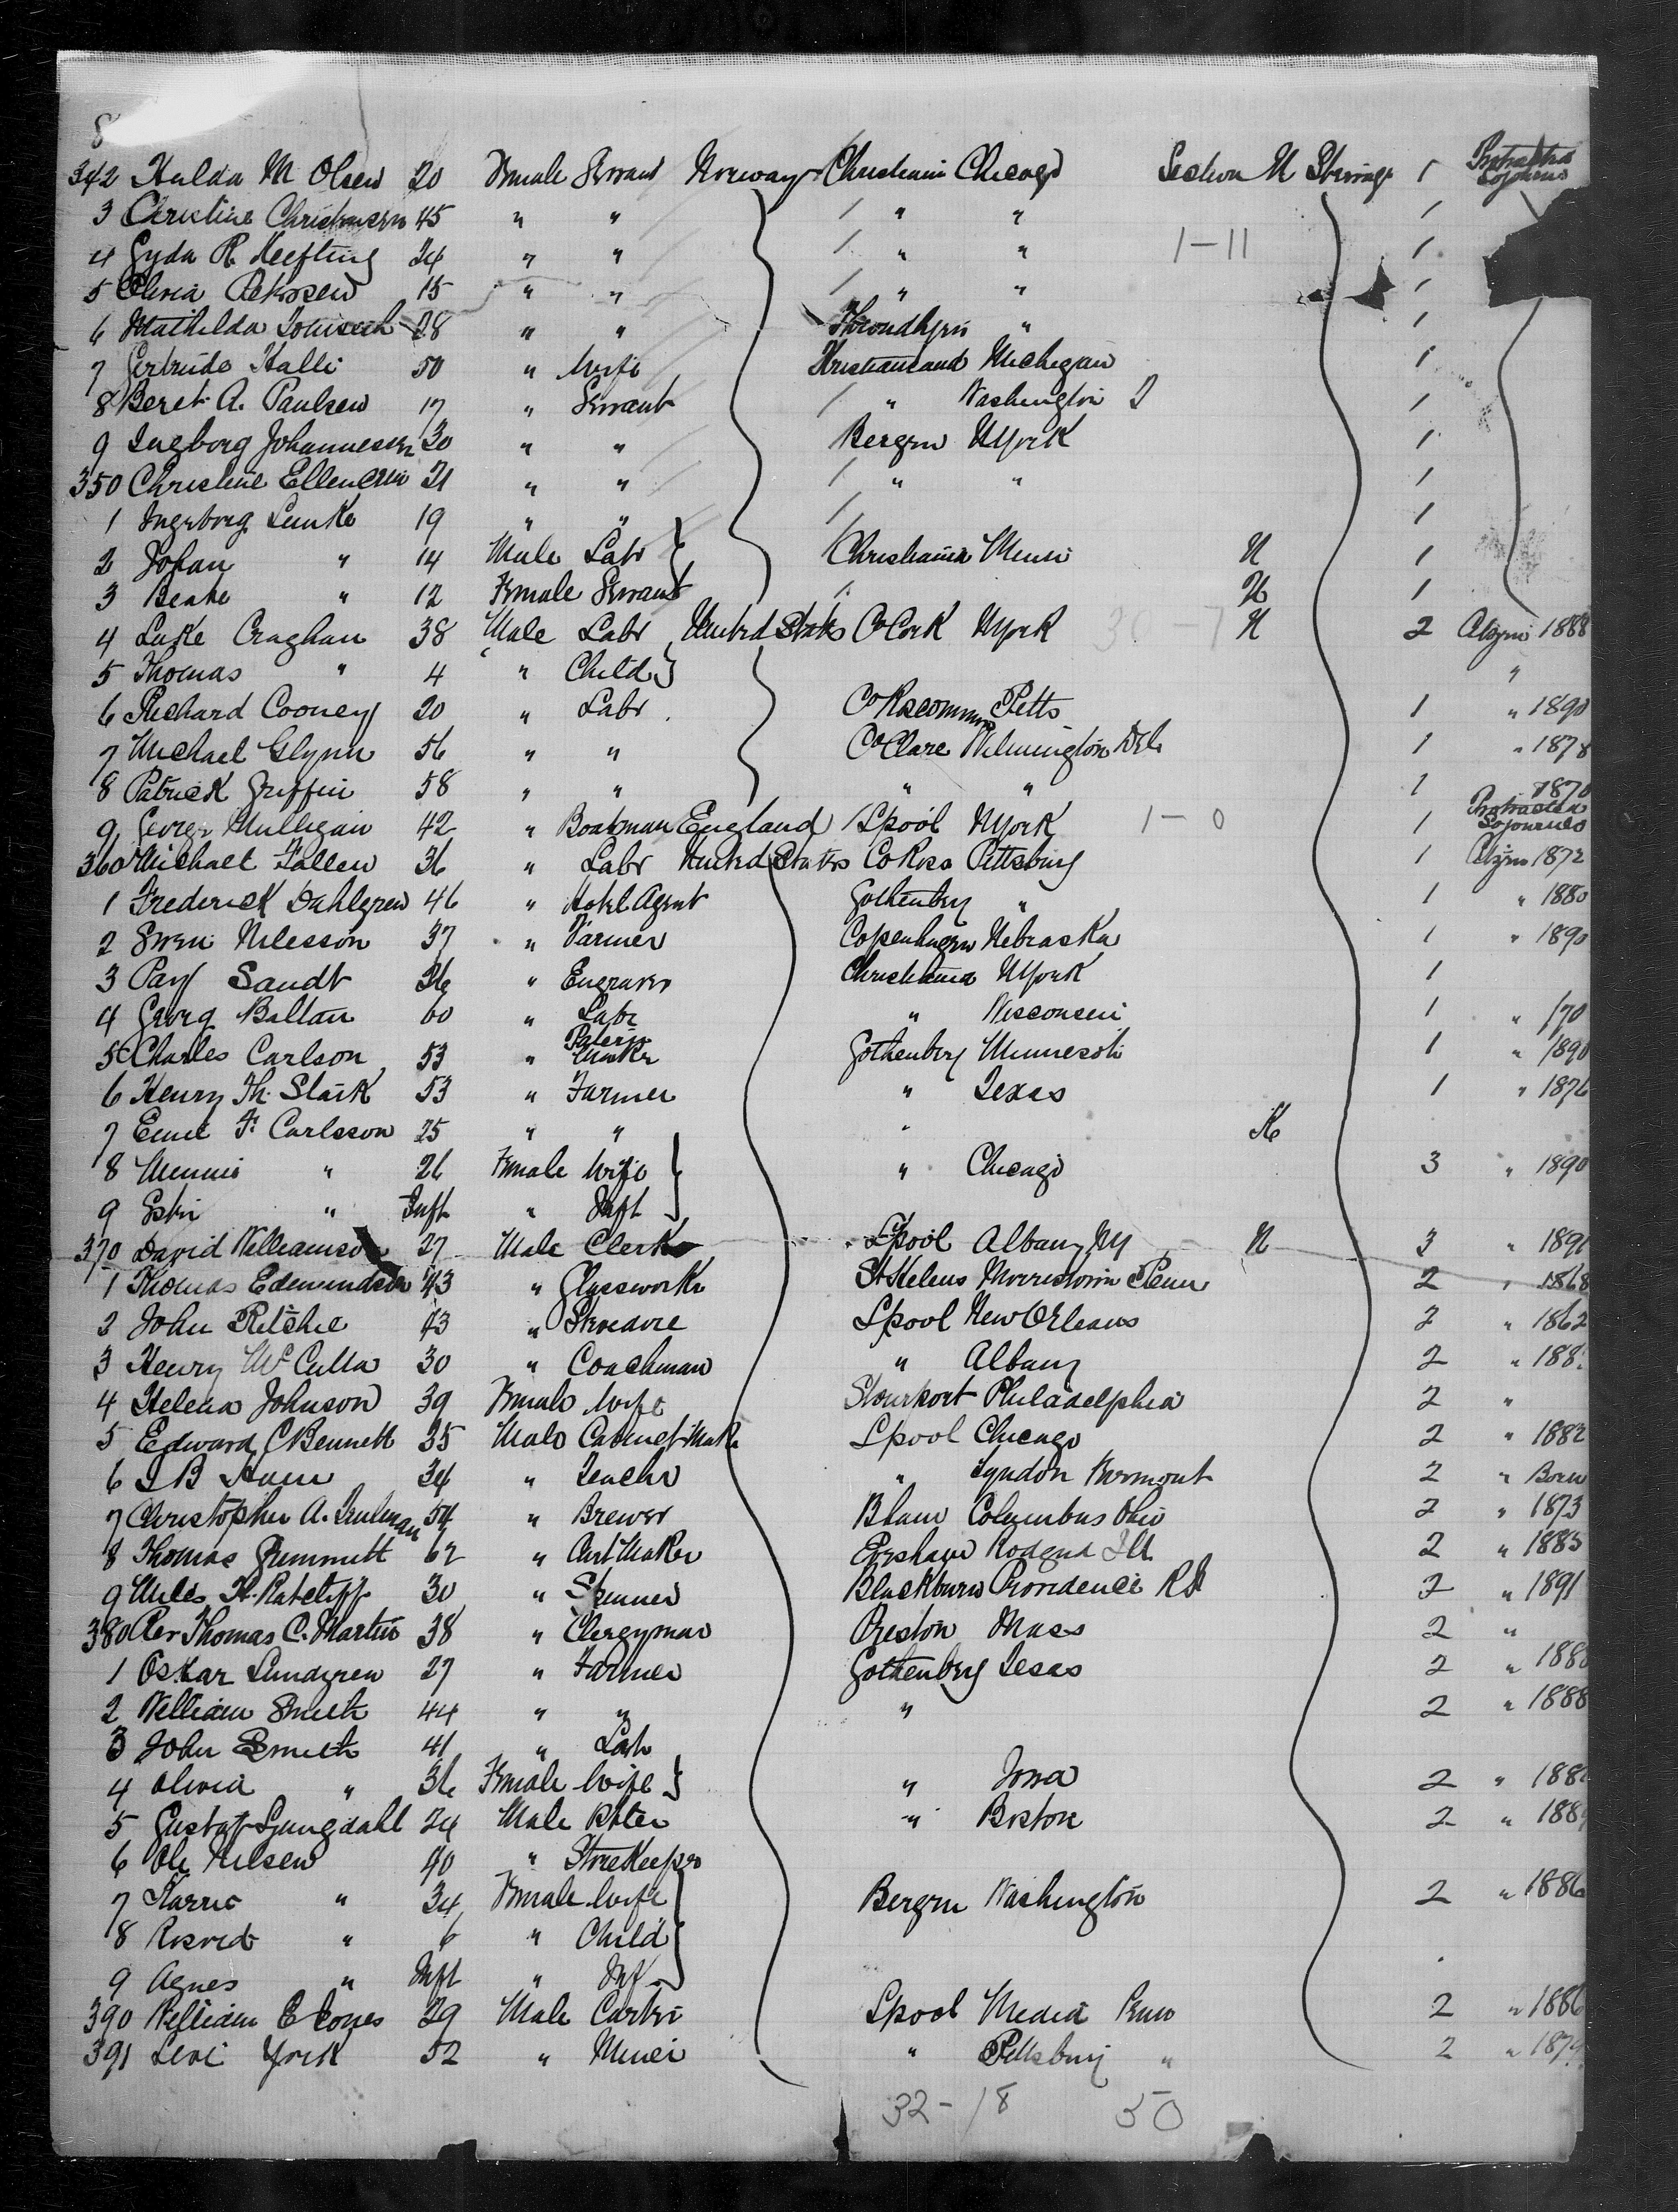 8
342 Hulda M Olsen 20 Female Servant Norway Christiania Chicago Section N Steerage 1 Protracted Sojourns
3 Christine Christensen 45 " " / " " 1
4 Gyda R. Keefting 24 " " / " " 1-11 1
5 Olivia Peterssen 15 " " / " " 1
6 Mathilda 28 " " Throndhjem " 1
7 Gertrude Halli 50 " Wife Kristiansand Michigan 1
8 Beret A. Paulsen 17 " Servant / " Washington T 1
9 Ingeborg Johannesen 30 " " Bergen N York 1
350 Christine Ellensen 21 " " / " " 1
1 Ingeborg Lunke 19 " " / 1
2 Johan " 14 Male Labr Christiania Minn N 1
3 Beate " 12 Female Servant / N 1
4 Luke Craghan 38 Male Labr United States Co Cork N York 30-7 N 2 Citizen 1888
5 Thomas " 4 " Child "
6 Richard Cooney 20 " Labr Co Roscommon Pitts 1 " 1890
7 Michael Glynn 56 " " Co Clare Wilmington Del 1 " 1878
8 Patrick Griffin 58 " " " " 1 1870
9 George Mulligan 42 " Boatman England / Lpool N York 1-0 1 Protracted Sojourns
360 Michael Fallen 36 " Labr United States Co Rosc Pittsburg 1 Citizen 1872
1 Frederick Dahlgren 46 " Hotel Agent Gothenberg " 1 " 1880
2 Swen Nilesson 37 " Farmer Copenhagen Nebraska 1 " 1890
3 Sandt 26 " Engraver Christiania N York 1
4 Georg Baltan 60 " Labr " Wisconsin 1 " /70
5 Charles Carlson 53 " Pattern Maker Gothenberg Minnesota 1 " 1890
6 Henry Th. Stark 53 " Farmer " Texas 1 " 1876
7 Emil F. Carlsson 25 " " "
8 Minnie " 26 Female Wife " Chicago 3 " 1890
9 " Inft " Inft
370 David Williamson 27 Male Clerk Lpool Albany NY N 3 " 1891
1 Thomas Edmundson 43 " Glassworkr St Helens Morristown Penn 2 " 1868
2 John Ritchie 43 " Stevedore Lpool New Orleans 2 " 1862
3 Henry McCulla 30 " Coachman " Albany 2 " 188
4 Helena Johnson 39 Female Wife Stourport Philadelphia 2 "
5 Edward C Bennett 35 Male Cabinet Makr Lpool Chicago 2 " 1882
6 34 " Teacher " Lyndon Vermont 2 " Born
7 Christopher A. 54 " Brewer Bham Columbus Ohio 2 " 1873
8 Thomas Grummitt 62 " Cart Maker Ill 2 " 1885
9 Miles H. Ratcliff 30 " Spinner Blackburn Providence RI 2 " 1891
380 Rev Thomas C. Martin 38 " Clergyman Preston Mass 2 "
1 Oskar Lundgren 27 " Farmer Gothenberg Texas 2 " 188
2 William Smith 44 " " " 2 " 1888
3 John Smith 41 " Labr
4 Olivia " 36 Female Wife " Iowa 2 " 188
5 Gustaf Ljungdahl 24 Male " Boston 2 " 188
6 Ole Nilsen 40 " Storekeeper
7 Karrie " 34 Female Wife Bergen Washington 2 " 1886
8 " 6 " Child
9 Agnes " Inft " Inf
390 William E Cones 29 Male Carter Lpool Media Penn 2 " 1886
391 Levi York 52 " Miner " Pittsburg " 2 " 1879
32-18 50